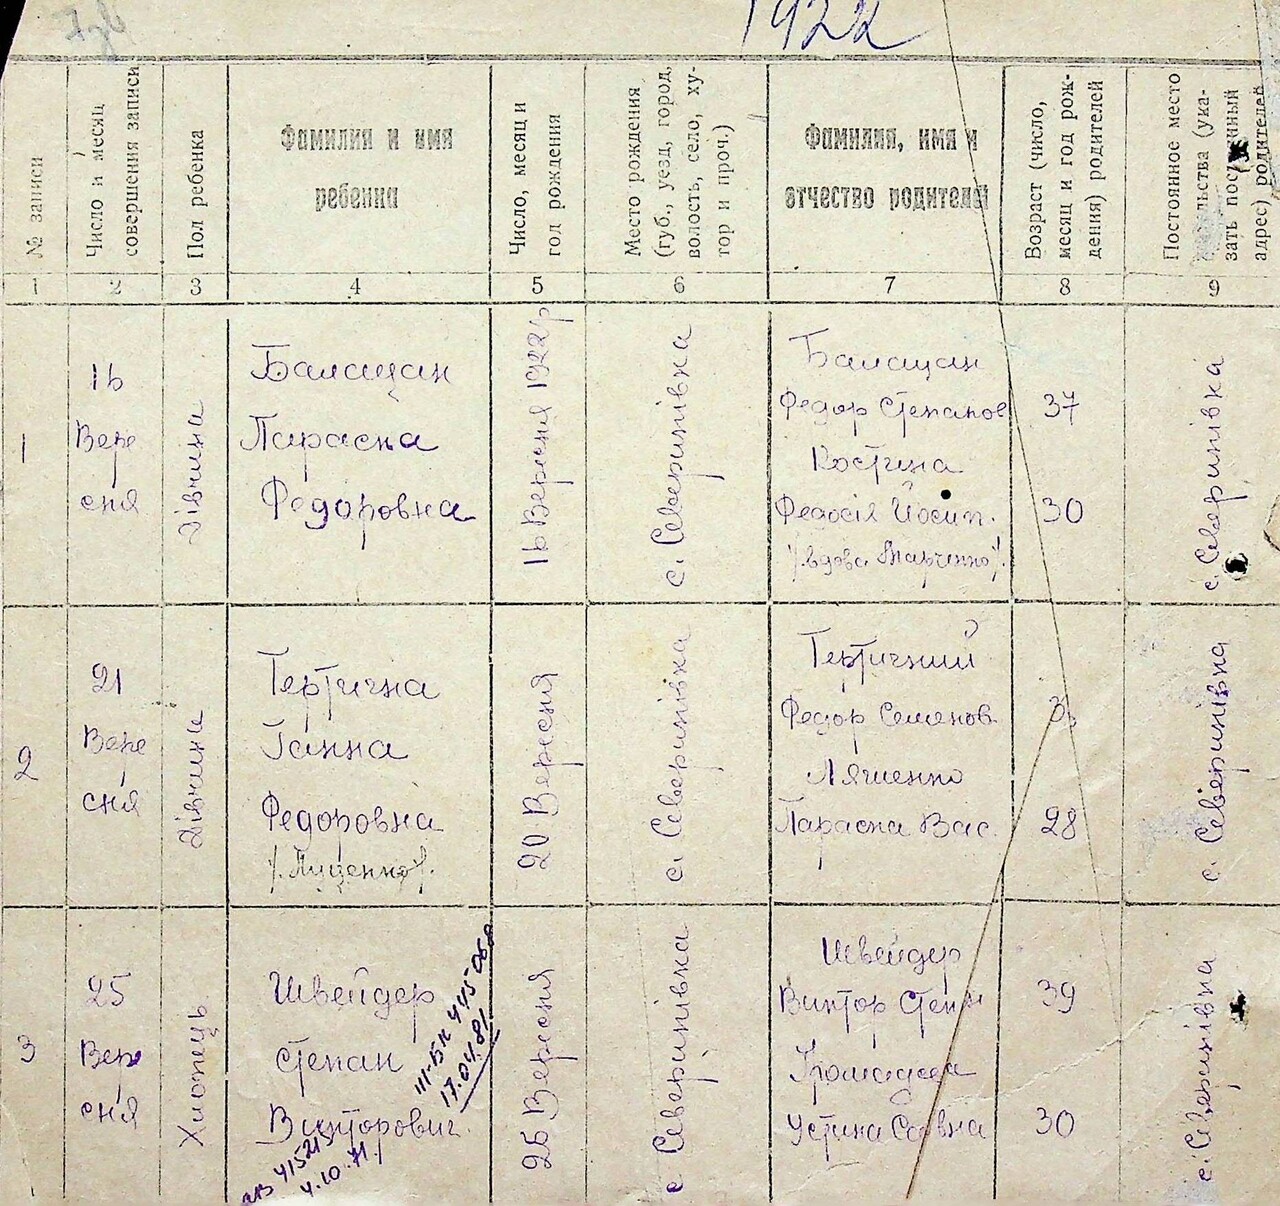 1922
№ записи
Число и месяц
совершения записи
Пол ребенка
Фамилия и имя
ребенка
Число, месяц и
год рождения
Место рождения
(губ., уезд, город,
волость, село, ху-
тор и проч.)
Фамилия, имя и
отчество родителей
Возраст (число,
месяц и год рож-
дения) родителей
Постоянное место
(ука-
зать
адрес) родителей
1 2 3 4 5 6 7 8 9
1
16
Вере
сня
Дівчина
Балацан
Параска
Федоровна
16 Вересня 1922 р
с. Северинівка
Балацан
Федор Степанов
Костина
Феодосія Йосип.
/.вдова Марченко/.
37
30
с. Северинівка
2
21
Вере
сня
Дівчина
Тертична
Ганна
Федоровна
/.Луценко/.
20 Вересня
с. Северинівка
Тертичний
Федор Семенов.
Ляшенко
Параска Вас.
28
с. Северинівка
3
25
Вере
сня
Хлопець
Швейдер
Степан
Викторович
III-БК 445068
17.04.81
4.10.71
25 Вересня
с. Северинівка
Швейдер
Виктор Степ
Громадска
Устина Савна
39
30
с. Северинівка